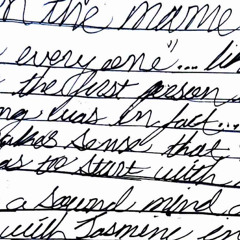 on the name
everyone"... li
the first person
ng was in fact...
makes sense that
as to start with
a sound mind a
with Jasmine in